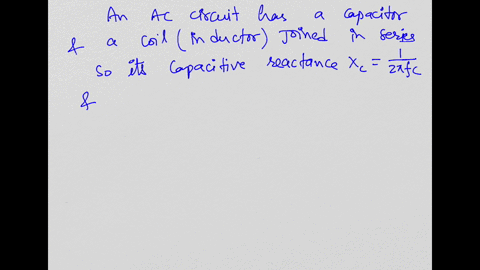 An AC circuit has a capacitor
& a coil (inductor) joined in series
so its capacitive reactance Xc = 1/2πfc
&